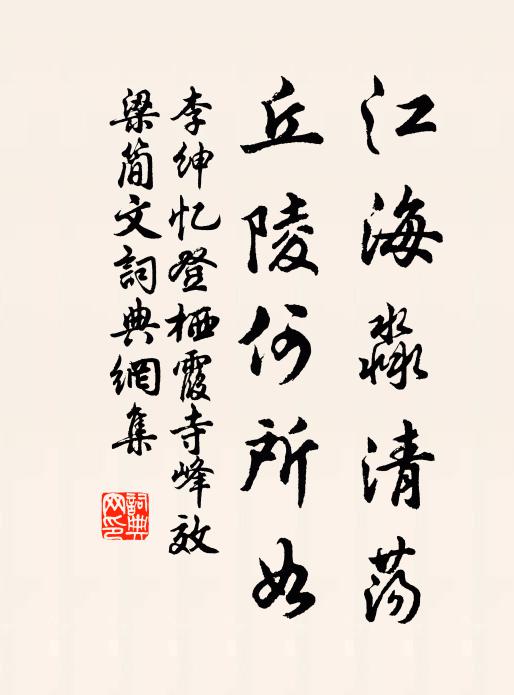 江海淼清荡
丘陵何所如
李绅忆登栖霞寺峰效
梁简文词典網集
詞典网印